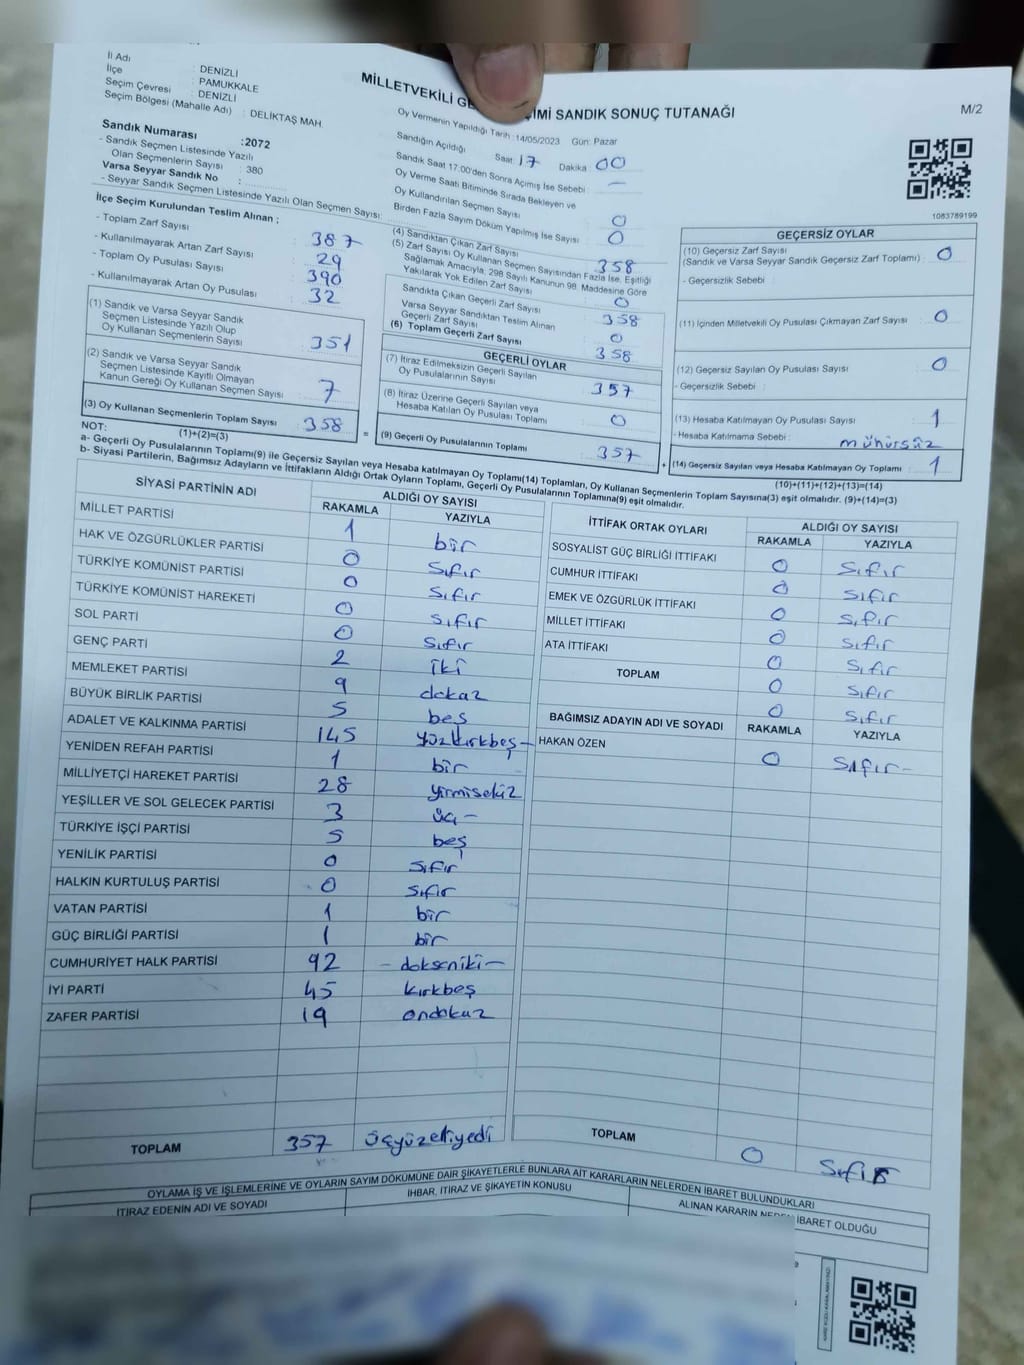 İl Adı : DENİZLİ
İlçe : PAMUKKALE
Seçim Çevresi : DENİZLİ
Seçim Bölgesi (Mahalle Adı) : DELİKTAŞ MAH.
MİLLETVEKİLİ GE
İMİ SANDIK SONUÇ TUTANAĞI
M/2
Sandık Numarası :2072
- Sandık Seçmen Listesinde Yazılı
Olan Seçmenlerin Sayısı : 380
Varsa Seyyar Sandık No :
- Seyyar Sandık Seçmen Listesinde Yazılı Olan Seçmen Sayısı:
Oy Vermenin Yapıldığı Tarih :14/05/2023 Gün: Pazar
Sandığın Açıldığı Saat: 17 Dakika 00
Sandık Saat 17:00'den Sonra Açılmış İse Sebebi : —
Oy Verme Saati Bitiminde Sırada Bekleyen ve
Oy Kullandırılan Seçmen Sayısı : 0
Birden Fazla Sayım Döküm Yapılmış İse Sayısı : 0
1083789199
İlçe Seçim Kurulundan Teslim Alınan ;
- Toplam Zarf Sayısı : 387
- Kullanılmayarak Artan Zarf Sayısı : 29
- Toplam Oy Pusulası Sayısı : 390
- Kullanılmayarak Artan Oy Pusulası : 32
(1) Sandık ve Varsa Seyyar Sandık
Seçmen Listesinde Yazılı Olup
Oy Kullanan Seçmenlerin Sayısı : 351
(2) Sandık ve Varsa Seyyar Sandık
Seçmen Listesinde Kayıtlı Olmayan
Kanun Gereği Oy Kullanan Seçmen Sayısı : 7
(3) Oy Kullanan Seçmenlerin Toplam Sayısı : 358
(1)+(2)=(3)
(4) Sandıktan Çıkan Zarf Sayısı : 358
(5) Zarf Sayısı Oy Kullanan Seçmen Sayısından Fazla İse, Eşitliği
Sağlamak Amacıyla, 298 Sayılı Kanunun 98. Maddesine Göre
Yakılarak Yok Edilen Zarf Sayısı : 0
Sandıkta Çıkan Geçerli Zarf Sayısı : 358
Varsa Seyyar Sandıktan Teslim Alınan
Geçerli Zarf Sayısı : 0
(6) Toplam Geçerli Zarf Sayısı : 358
GEÇERLİ OYLAR
(7) İtiraz Edilmeksizin Geçerli Sayılan
Oy Pusulalarının Sayısı : 357
(8) İtiraz Üzerine Geçerli Sayılan veya
Hesaba Katılan Oy Pusulası Toplamı : 0
= (9) Geçerli Oy Pusulalarının Toplamı : 357
GEÇERSİZ OYLAR
(10) Geçersiz Zarf Sayısı
(Sandık ve Varsa Seyyar Sandık Geçersiz Zarf Toplamı) : 0
- Geçersizlik Sebebi :
(11) İçinden Milletvekili Oy Pusulası Çıkmayan Zarf Sayısı : 0
(12) Geçersiz Sayılan Oy Pusulası Sayısı : 0
- Geçersizlik Sebebi :
(13) Hesaba Katılmayan Oy Pusulası Sayısı : 1
- Hesaba Katılmama Sebebi : mühürsüz
+ (14) Geçersiz Sayılan veya Hesaba Katılmayan Oy Toplamı : 1
(10)+(11)+(12)+(13)=(14)
NOT:
a- Geçerli Oy Pusulalarının Toplamı(9) ile Geçersiz Sayılan veya Hesaba katılmayan Oy Toplamı(14) Toplamları, Oy Kullanan Seçmenlerin Toplam Sayısına(3) eşit olmalıdır. (9)+(14)=(3)
b- Siyasi Partilerin, Bağımsız Adayların ve İttifakların Aldığı Ortak Oyların Toplamı, Geçerli Oy Pusulalarının Toplamına(9) eşit olmalıdır.
SİYASİ PARTİNİN ADI ALDIĞI OY SAYISI
RAKAMLA YAZIYLA
MİLLET PARTİSİ 1 bir
HAK VE ÖZGÜRLÜKLER PARTİSİ 0 Sıfır
TÜRKİYE KOMÜNİST PARTİSİ 0 Sıfır
TÜRKİYE KOMÜNİST HAREKETİ 0 Sıfır
SOL PARTİ 0 Sıfır
GENÇ PARTİ 2 iki
MEMLEKET PARTİSİ 9 dokuz
BÜYÜK BİRLİK PARTİSİ 5 beş
ADALET VE KALKINMA PARTİSİ 145 yüzkırkbeş
YENİDEN REFAH PARTİSİ 1 bir
MİLLİYETÇİ HAREKET PARTİSİ 28 yirmisekiz
YEŞİLLER VE SOL GELECEK PARTİSİ 3 üç –
TÜRKİYE İŞÇİ PARTİSİ 5 beş
YENİLİK PARTİSİ 0 Sıfır
HALKIN KURTULUŞ PARTİSİ 0 Sıfır
VATAN PARTİSİ 1 bir
GÜÇ BİRLİĞİ PARTİSİ 1 bir
CUMHURİYET HALK PARTİSİ 92 – dokseniki –
İYİ PARTİ 45 kırkbeş
ZAFER PARTİSİ 19 ondokuz
TOPLAM 357 üçyüzelliyedi
İTTİFAK ORTAK OYLARI ALDIĞI OY SAYISI
RAKAMLA YAZIYLA
SOSYALİST GÜÇ BİRLİĞİ İTTİFAKI 0 Sıfır
CUMHUR İTTİFAKI 0 Sıfır
EMEK VE ÖZGÜRLÜK İTTİFAKI 0 Sıfır
MİLLET İTTİFAKI 0 Sıfır
ATA İTTİFAKI 0 Sıfır
TOPLAM 0 Sıfır
0 Sıfır
BAĞIMSIZ ADAYIN ADI VE SOYADI RAKAMLA YAZIYLA
HAKAN ÖZEN 0 Sıfır –
TOPLAM 0 Sıfır
OYLAMA İŞ VE İŞLEMLERİNE VE OYLARIN SAYIM DÖKÜMÜNE DAİR ŞİKAYETLERLE BUNLARA AİT KARARLARIN NELERDEN İBARET BULUNDUKLARI
İTİRAZ EDENİN ADI VE SOYADI
İHBAR, İTİRAZ VE ŞİKAYETİN KONUSU
ALINAN KARARIN NEDEN İBARET OLDUĞU